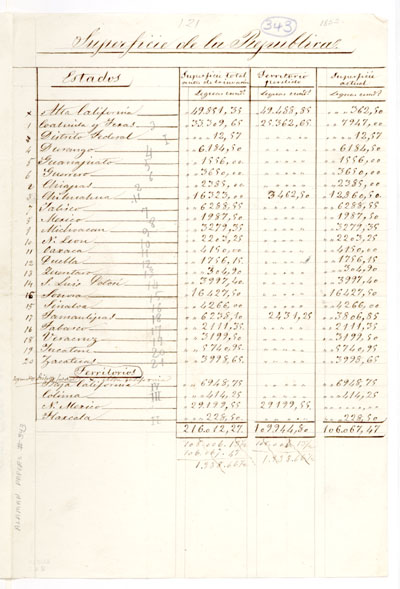 121 343
Superficie de la Republica.
Estados Superficie total Territorio perdido Superficie actual
Leguas cuad.s Leguas cuad.s Leguas cuad.s
x Alta California 49.851,35 49.488,85 362,50
Coahuila y Texas 33.309,65 25.362,65 7947,00
Distrito Federal 12,57 12,57
4 Durango 6.184,50 6184,50
5 Guanajuato 1556,00 1556,00
6 Guerrero 3650,00 3650,00
Chiapas 2385,00 2385,00
Chihuahua 16323,00 3462,50 12860,50
Jalisco 6288,55 6288,55
Mexico 1987,50 1987,50
Michoacan 3279,35 3279,35
10 N. Leon 2203,25 2203,25
11 Oaxaca 4150,00 4150,00
12 Puebla 1756,15 1756,15
13 Queretaro 304,90 304,90
14 S. Luis Potosi 3997,40 3997,40
15 Sonora 16427,50 16427,50
15 Sinaloa 4266,00 4266,00
17 Tamaulipas 6238,10 2431,25 3806,85
16 Tabasco 2111,35 2111,35
18 Veracruz 3199,50 3199,50
19 Yucatan 5740,95 5740,95
20 Zacatecas 3998,65 3998,65
Territorios
Baja California 6948,75 6948,75
Colima 414,25 414,25
N. Mexico 29199,55 29199,55
Tlaxcala 228,50 228,50
216.012,27 109.944,80 106.067,47